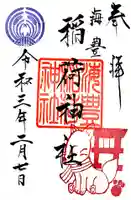 奉拝
海豊
稲荷神社
海豊
神社
令和三年二月七日